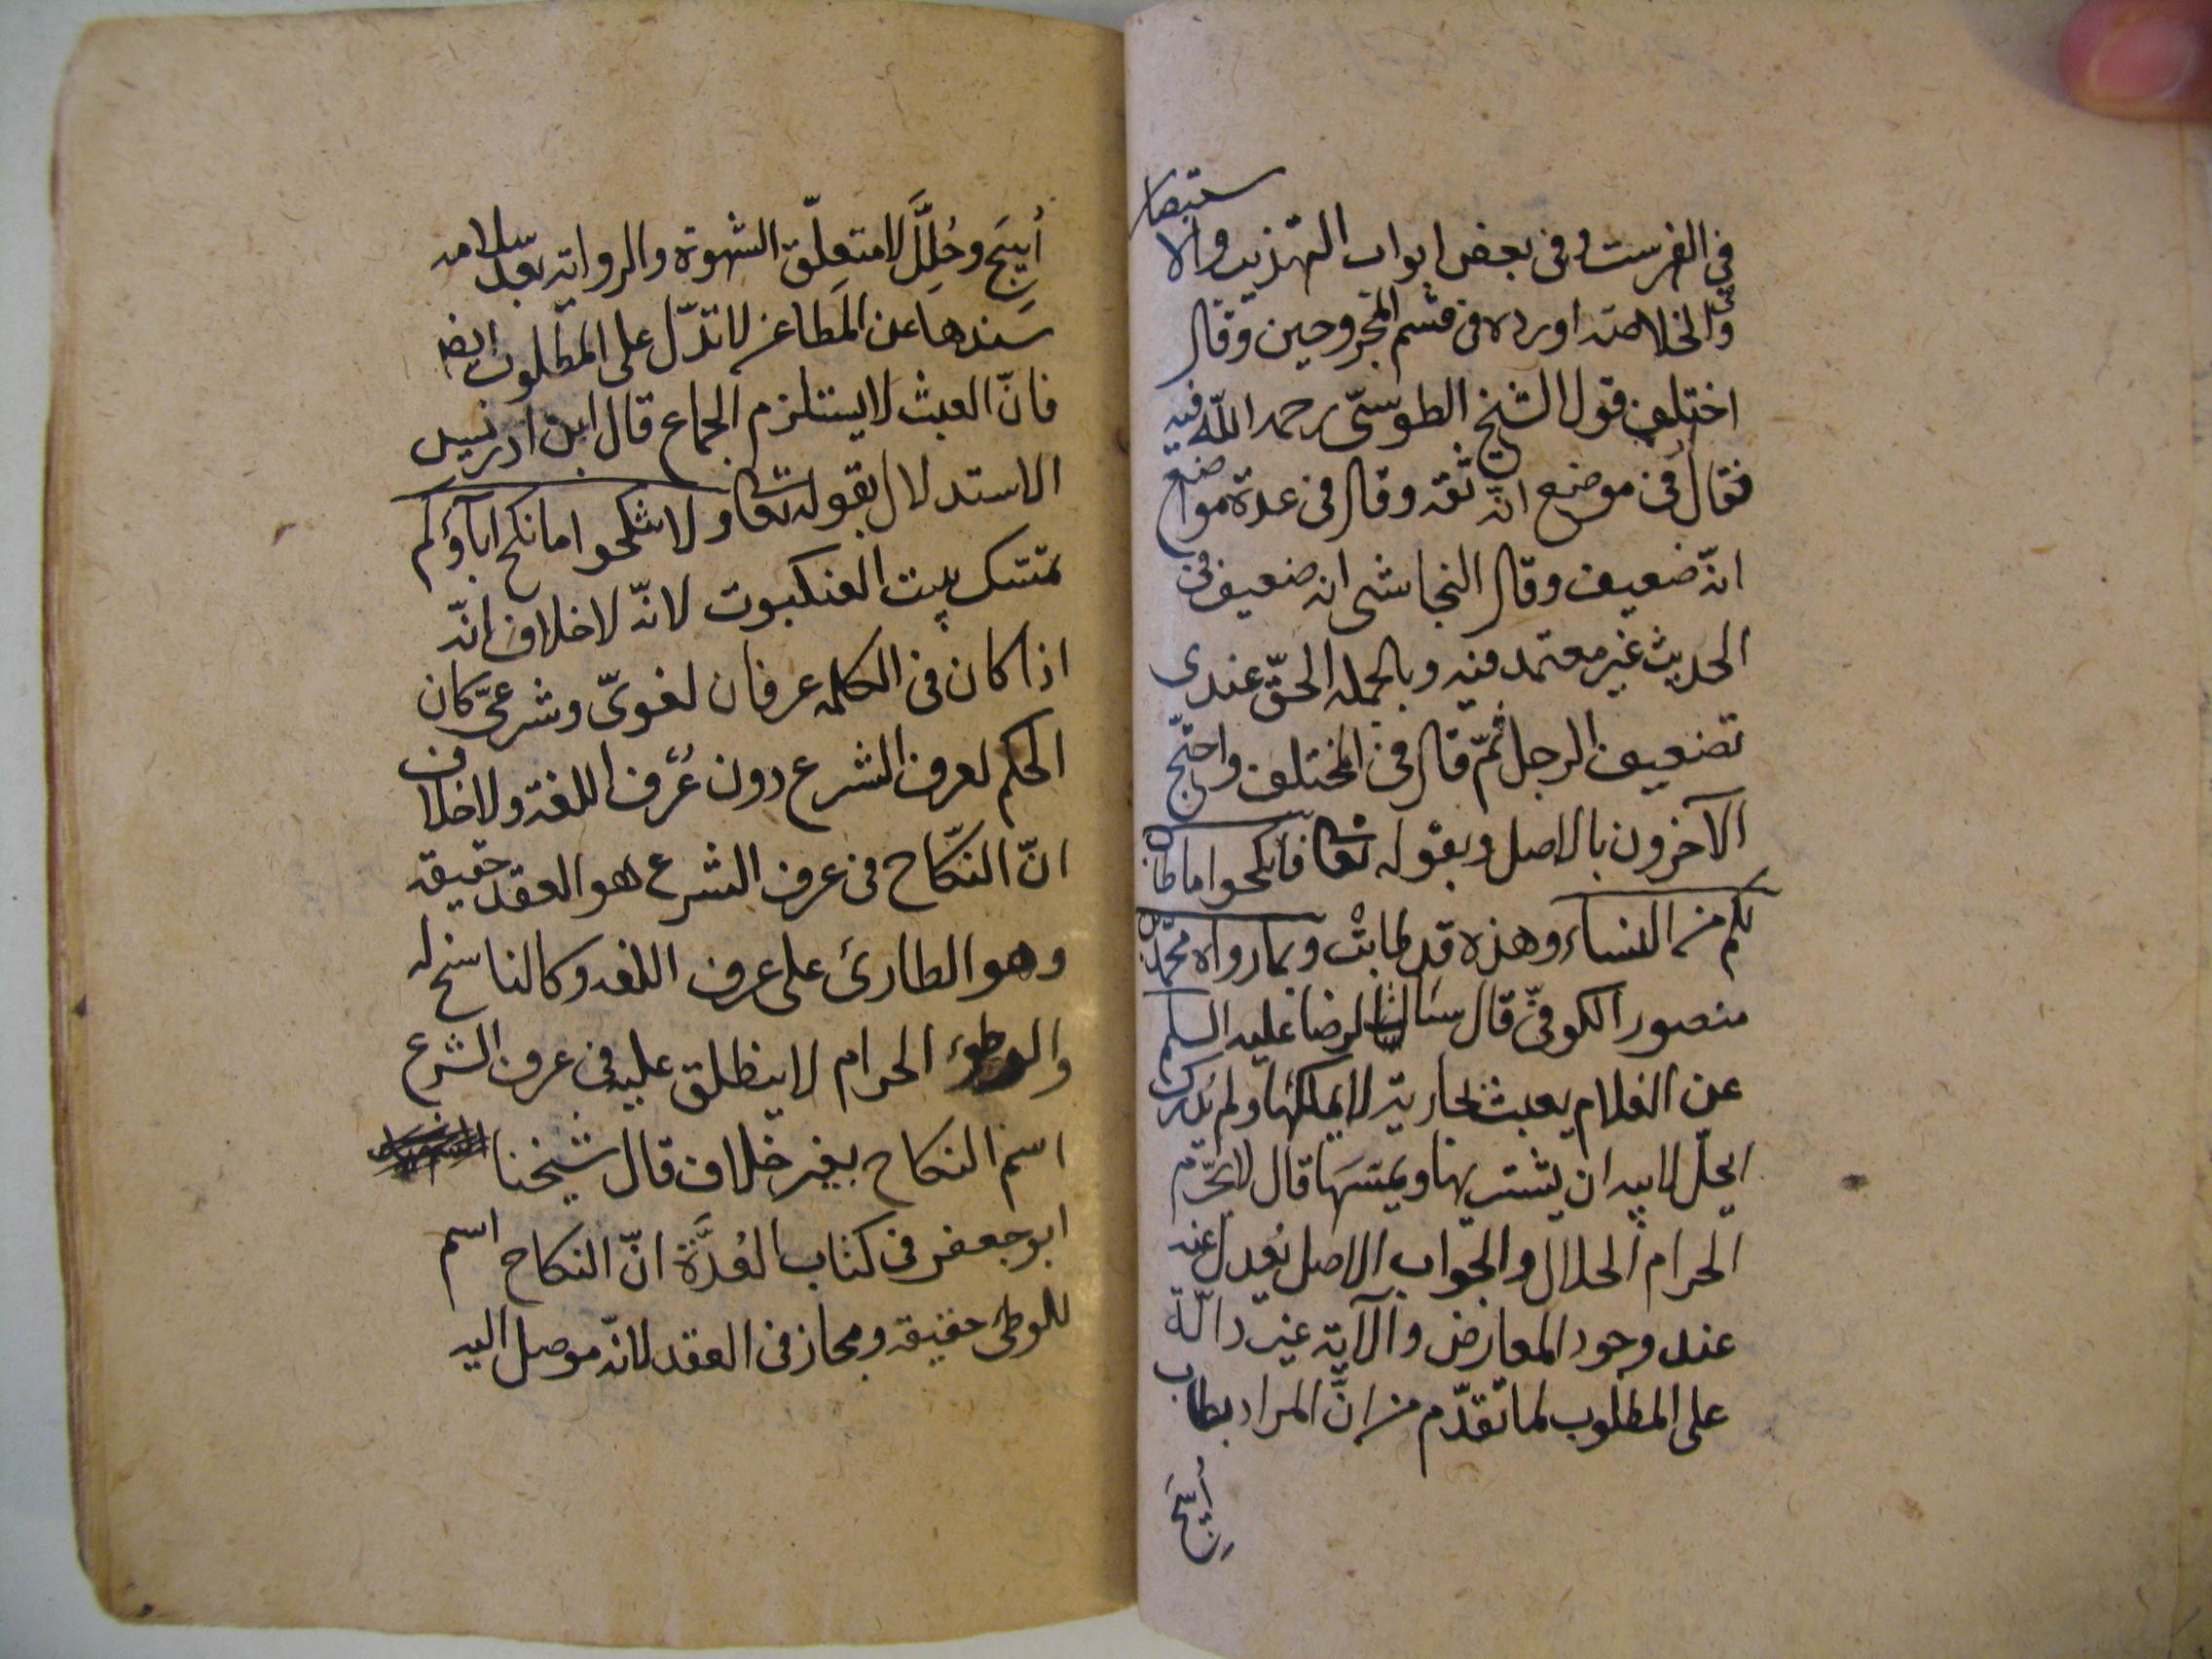 في الفهرست وفى بعض ابواب التهذيب والا
ستبصا
وفى الخلاصة اورده فى قسم المجروحين وقال
اختلف قول الشيخ الطوسىّ رحمه اللّه فيه
فقال فى موضع انّه ثقة وقال فى عدة مواضع
انّه ضعيف وقال النجاشى انه ضعيف فى
الحديث غير معتمد فيه وبالجمله الحقّ عندى
تضعيف الرجل ثمّ قال فى المختلف واحتجّ
الآخرون بالاصل وبقوله تعا فانكحوا ما طاب
لكم من النساء وهذه قد طابتْ وبما رواه محمّد بن
منصور الكوفىّ قال سالت الرضا عليه السلم
عن الغلام يعبث بجارية لا يملكها ولم يُدرك
ايحلّ لابيه ان يشتريها ويمسّها قال لا يحرّم
الحرام الحلال والجواب الاصل يُعدل عنه
عند وجود المعارض والآية غير دالّة
على المطلوب لما تقدّم من انّ المراد بطاب
أُبِيحَ
أُبِيحَ وحُلِّلَ لا متعلِّق الشهوة والرواية بعد سلامة
سَندها عن المطاعن لا تدّل على المطلوب ايضا
فانّ العبث لا يستلزم الجماع قال ابن ادريس
الاستدلال بقوله تعا ولا تنكحوا ما نكح آباؤكم
تمسّك ببيت العنكبوت لانّه لا خلاف انّه
اذا كان فى الكلمه عرفان لغوىّ وشرعىّ كان
الحكم لعرف الشرع دون عُرف اللغة ولا خلاف
انّ النكّاح فى عرف الشرع هو العقد حقيقة
وهو الطارئ على عرف اللغه وكالناسخ له
والوطوء الحرام لا ينطلق عليه فى عرف الشرع
اسم النكاح بغير خلاف قال شيخنا
ابو جعفر فى كتاب العُدَّة انّ النكاح اسم
للوطى حقيقة ومجاز فى العقد لانّه موصل اليه